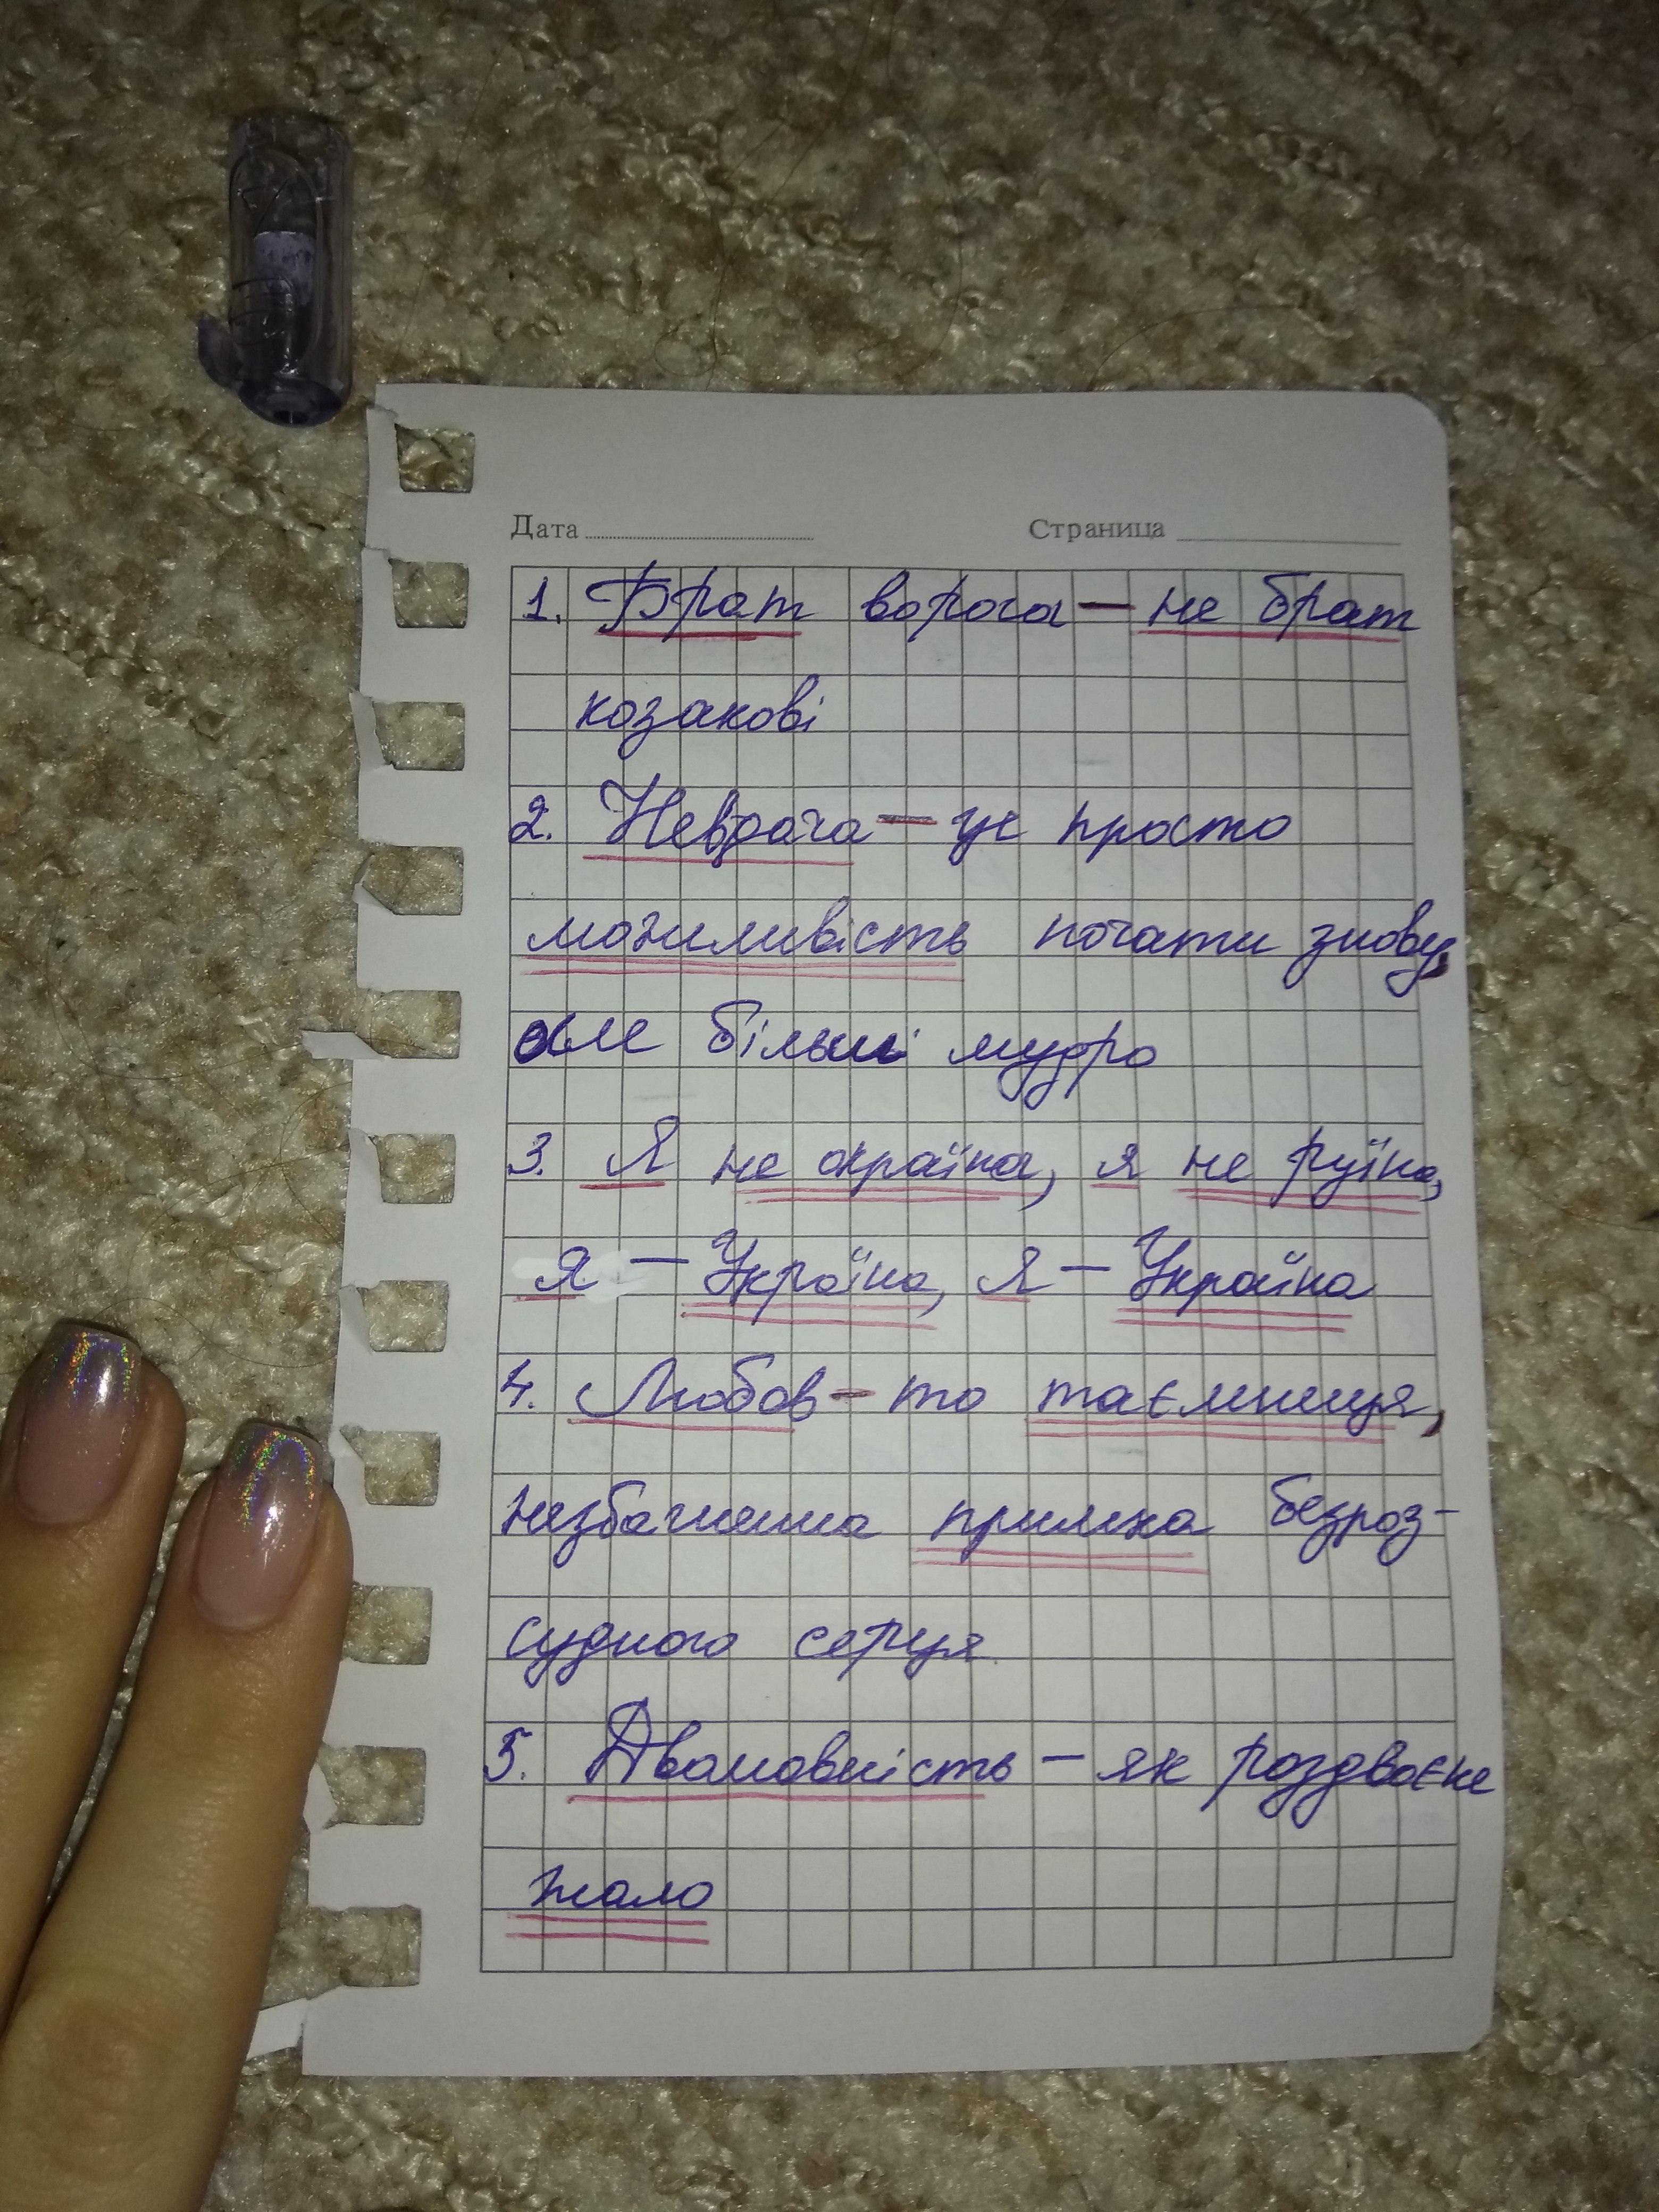 Дата Страница
1. Брат ворога — не брат
козакові
2. Невдача — це просто
можливість почати знову,
але більш мудро
3. Я не окраїна, я не руїна,
я — Україна, я — Україна
4. Любов — то таємниця,
незбагненна примха безроз-
судного серця
5. Двомовність — як роздвоєне
жало